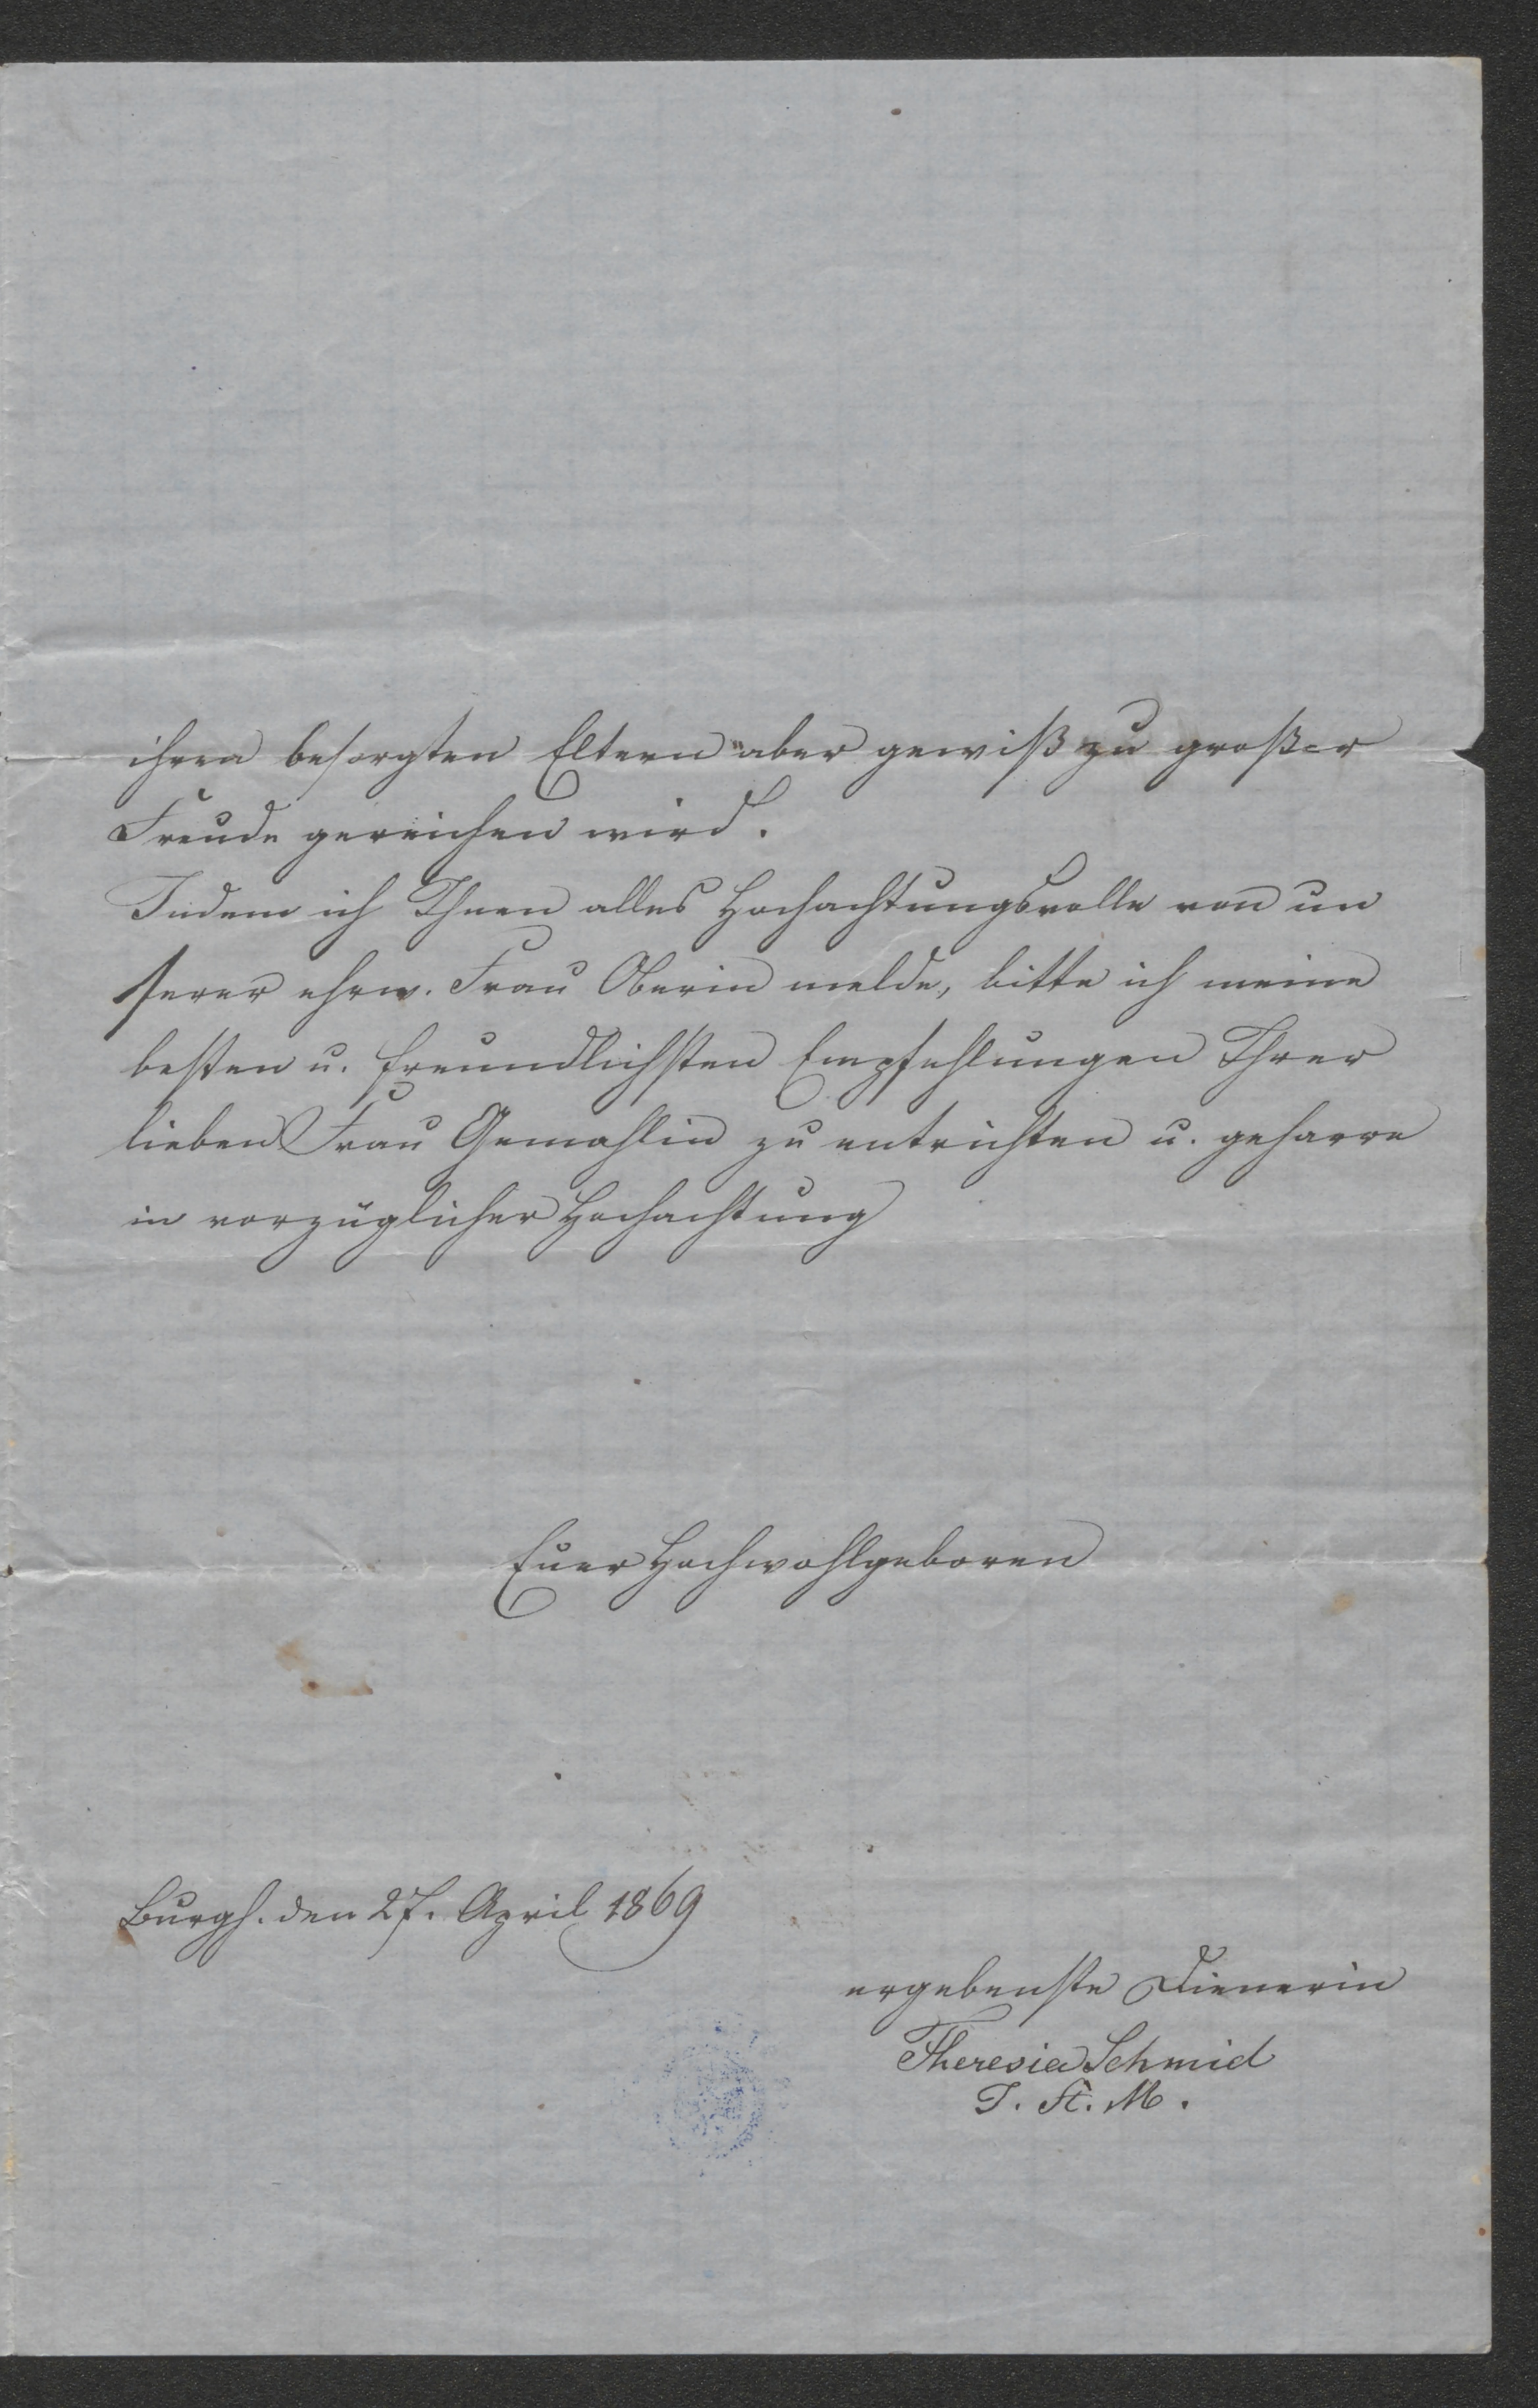 ihren besorgten Eltern aber gewiß zu großer
Freude gereichen wird.
Indem ich Ihnen alles Hochachtungsvolle von un
serer ehrw. Frau Oberin melde, bitte ich meine
besten u. freundlichsten Empfehlungen Ihrer
lieben Frau Gemahlin zu entrichten u. geharre
in vorzüglicher Hochachtung
Euer Hochwohlgeboren
Burgh. den 27. April 1869
ergebenste Dienerin
Theresia Schmid
I. St. M.